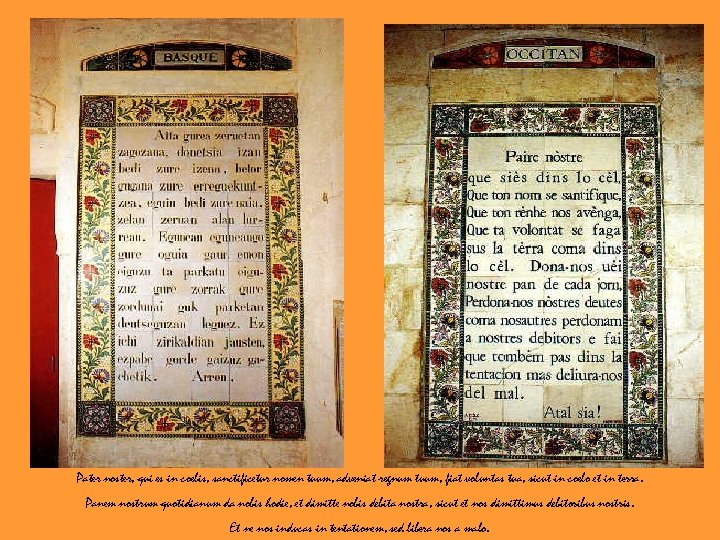 BASQUE
Aita gurea zeruetan
zagozana, donetsia izan
bedi zure izena, betor
gugana zure erreguekunt-
zea, eguin bedi zure naia,
zelan zeruan alan lur-
rean. Egunean eguneango
gure oguia gaur emon
eiguzu ta parkatu eigu-
zuz gure zorrak gure
zordunai guk parketan
deutseguzan leguez. Ez
ichi zirikaldian jausten,
ezpabe gorde gaizuz ga-
chetik. Arren.
OCCITAN
Paire nòstre
que siès dins lo cèl,
Que ton nom se santifique,
Que ton rènhe nos avènga,
Que ta volontat se faga
sus la tèrra coma dins
lo cèl. Dona-nos uèi
nostre pan de cada jorn,
Perdona-nos nòstres deutes
coma nosautres perdonam
a nostres debitors e fai
que tombèm pas dins la
tentacion mas deliura-nos
del mal.
Atal sia!
Pater noster, qui es in coelis, sanctificetur nomen tuum, adveniat regnum tuum, fiat voluntas tua, sicut in coelo et in terra.
Panem nostrum quotidianum da nobis hodie, et dimitte nobis debita nostra, sicut et nos dimittimus debitoribus nostris.
Et ne nos inducas in tentationem, sed libera nos a malo.